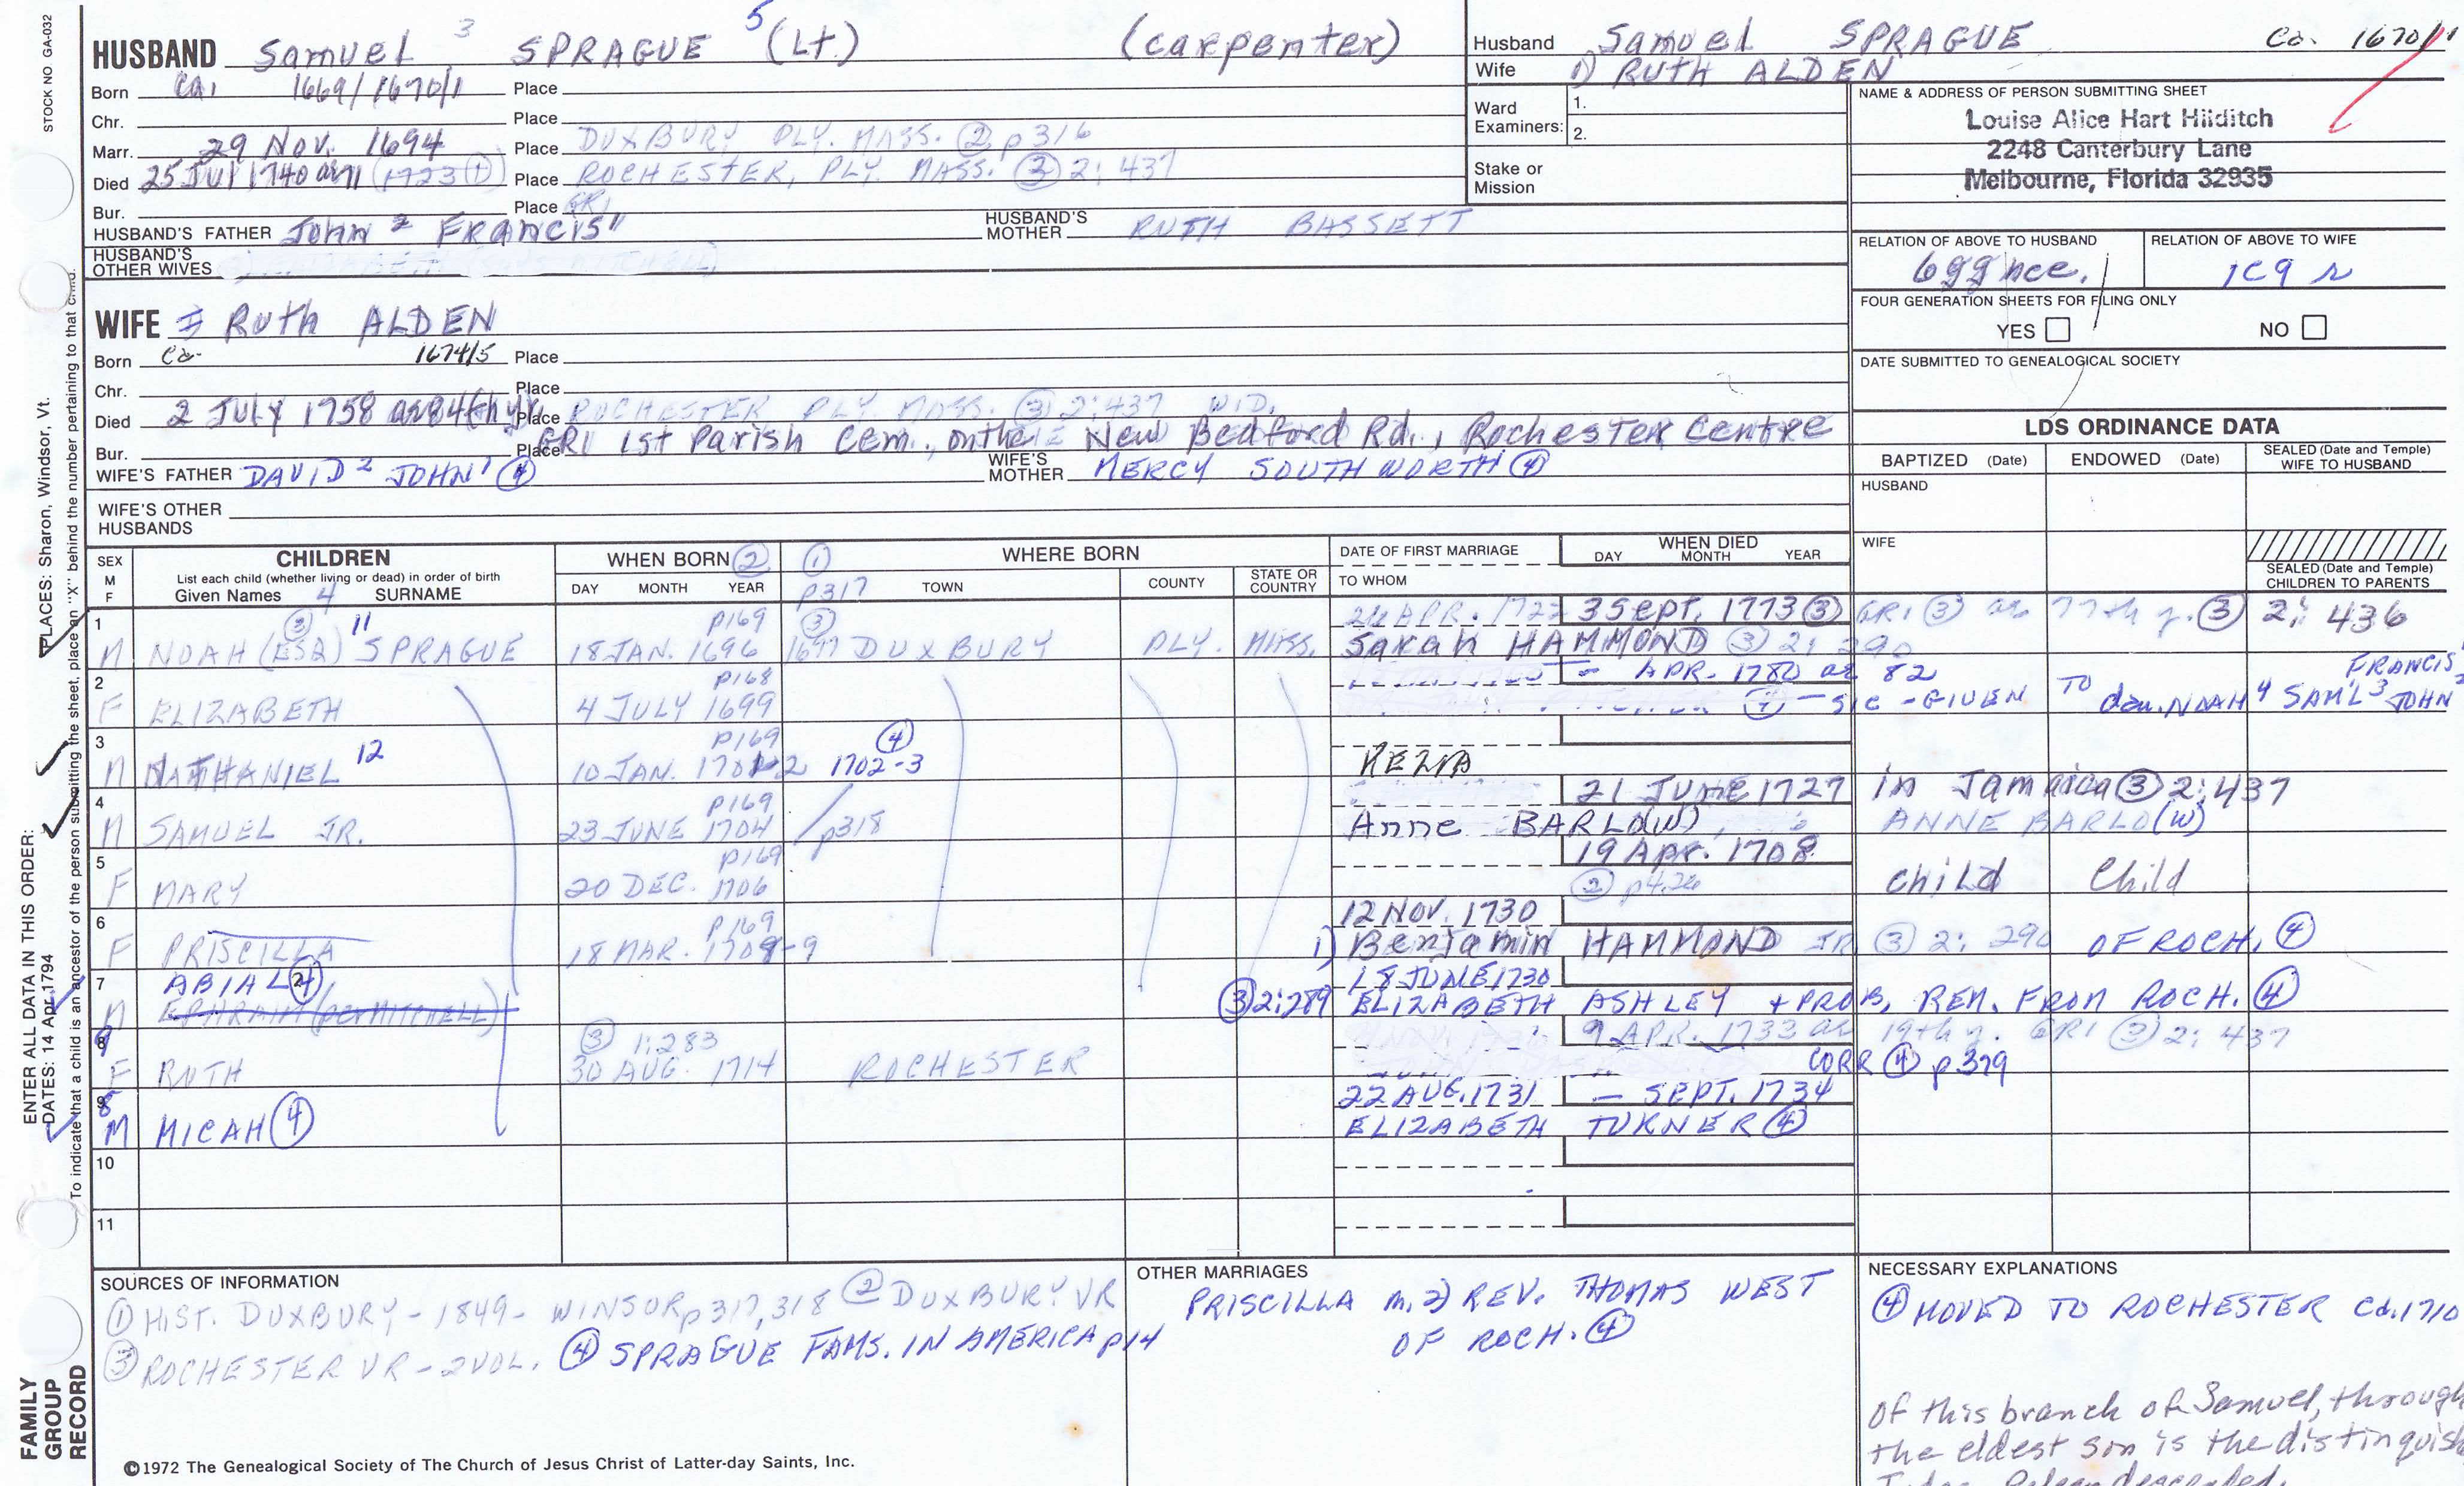 STOCK NO GA-032
HUSBAND Samuel 3 SPRAGUE 5 (Lt) (carpenter)
Born Ca. 1669/1670/1 Place
Chr. Place
Marr. 29 Nov. 1694 Place DUXBURY, PLY. MASS. ② p316
Died 25 Jul 1740 ae 71 (1723 ①) Place ROCHESTER, PLY. MASS. ③ 2:437
Bur. Place GRI
HUSBAND'S FATHER John 2 FRANCIS 1 HUSBAND'S MOTHER RUTH BASSETT
HUSBAND'S OTHER WIVES
Husband Samuel SPRAGUE Ca. 1670/1
Wife 1) RUTH ALDEN
Ward Examiners: 1. 2.
Stake or Mission
NAME & ADDRESS OF PERSON SUBMITTING SHEET
Louise Alice Hart Hilditch
2248 Canterbury Lane
Melbourne, Florida 32935
RELATION OF ABOVE TO HUSBAND RELATION OF ABOVE TO WIFE
6gg nce. 1c9r
FOUR GENERATION SHEETS FOR FILING ONLY
YES NO
DATE SUBMITTED TO GENEALOGICAL SOCIETY
WIFE Ruth ALDEN
Born Ca. 1674/5 Place
Chr. Place
Died 2 JULY 1758 ae 84th yr. Place ROCHESTER PLY. MASS. ③ 2:437 WID.
Bur. Place GRI 1st Parish Cem., on the New Bedford Rd., Rochester Centre
WIFE'S FATHER DAVID 2 JOHN 1 ④ WIFE'S MOTHER MERCY SOUTHWORTH ④
WIFE'S OTHER HUSBANDS
LDS ORDINANCE DATA
BAPTIZED (Date) ENDOWED (Date) SEALED (Date and Temple) WIFE TO HUSBAND
HUSBAND
WIFE
SEALED (Date and Temple) CHILDREN TO PARENTS
SEX M F
CHILDREN
List each child (whether living or dead) in order of birth
Given Names 4 SURNAME
WHEN BORN ② DAY MONTH YEAR
① p317 WHERE BORN TOWN COUNTY STATE OR COUNTRY
DATE OF FIRST MARRIAGE
TO WHOM
WHEN DIED DAY MONTH YEAR
1 p169 ③ 24 APR. 3 Sept. 1773 ③ GRI ③ ae 77th y. ③ 2: 436
M NOAH (ESQ) ③ 11 SPRAGUE 18 JAN. 1696 1697 DUXBURY PLY. MASS. Sarah HAMMOND ③ 2: 290
2 p168 – APR. 1780 ae 82 FRANCIS 1
F ELIZABETH 4 JULY 1699 ④ – SIC – GIVEN TO dau. NOAH 4 SAML 3 JOHN
3 p169 ④
M NATHANIEL 12 10 JAN. 1701-2 1702-3 KEZIA
4 p169 21 JUNE 1727 in Jamaica ③ 2:437
M SAMUEL JR. 23 JUNE 1704 p318 Anne BARLO(W) ANNE BARLO(W)
5 p169 19 Apr. 1708
F MARY 20 DEC. 1706 ② p426 child Child
6 p169 12 NOV. 1730
F PRISCILLA 18 MAR. 1708-9 1) Benjamin HAMMOND JR ③ 2: 290 OF ROCH. ④
7 ABIAL ④ 18 JUNE 1730
M EPHRAIM (per MITCHELL) ③ 2:289 ELIZABETH ASHLEY + PROB. REM. FROM ROCH. ④
9 ③ 1:283 9 APR. 1733 ae 19th y. GRI ③ 2: 437
F RUTH 30 AUG. 1714 ROCHESTER CORR ④ p379
8 22 AUG. 1731 – SEPT. 1734
M MICAH ④ ELIZABETH TURNER ④
10
11
SOURCES OF INFORMATION
① HIST. DUXBURY – 1849 – WINSOR p317,318 ② DUXBURY VR
③ ROCHESTER VR – 2 VOL. ④ SPRAGUE FAMS. IN AMERICA p14
OTHER MARRIAGES
PRISCILLA m. 2) REV. THOMAS WEST
OF ROCH. ④
NECESSARY EXPLANATIONS
④ MOVED TO ROCHESTER Ca. 1710
Of this branch of Samuel, through
the eldest son is the distinguish
©1972 The Genealogical Society of The Church of Jesus Christ of Latter-day Saints, Inc.
FAMILY GROUP RECORD
ENTER ALL DATA IN THIS ORDER:
PLACES: Sharon, Windsor, Vt.
DATES: 14 Apr 1794
To indicate that a child is an ancestor of the person submitting the sheet, place an "X" behind the number pertaining to that child.